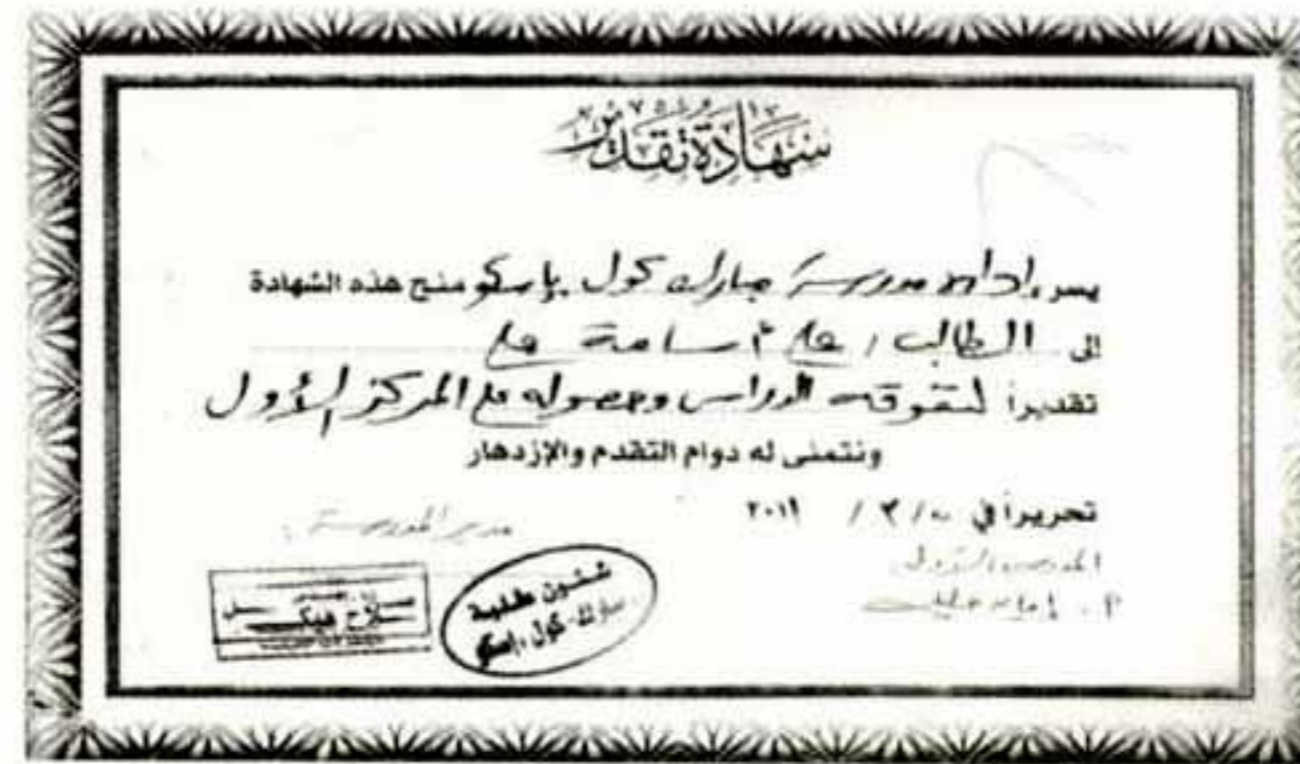 شهادة تقدير
يسر إدارة مدرسة مبارك كول باسكو منح هذه الشهادة
إلى الطالب / علي أسامة علي
تقديراً لتفوقه الدراسي وحصوله علي المركز الأول
ونتمنى له دوام التقدم والإزدهار
تحريراً في / ٣ / ٢٠١١
مدير المدرسة
شئون طلبة
مبارك - كول - باسكو
صلاح هيكل